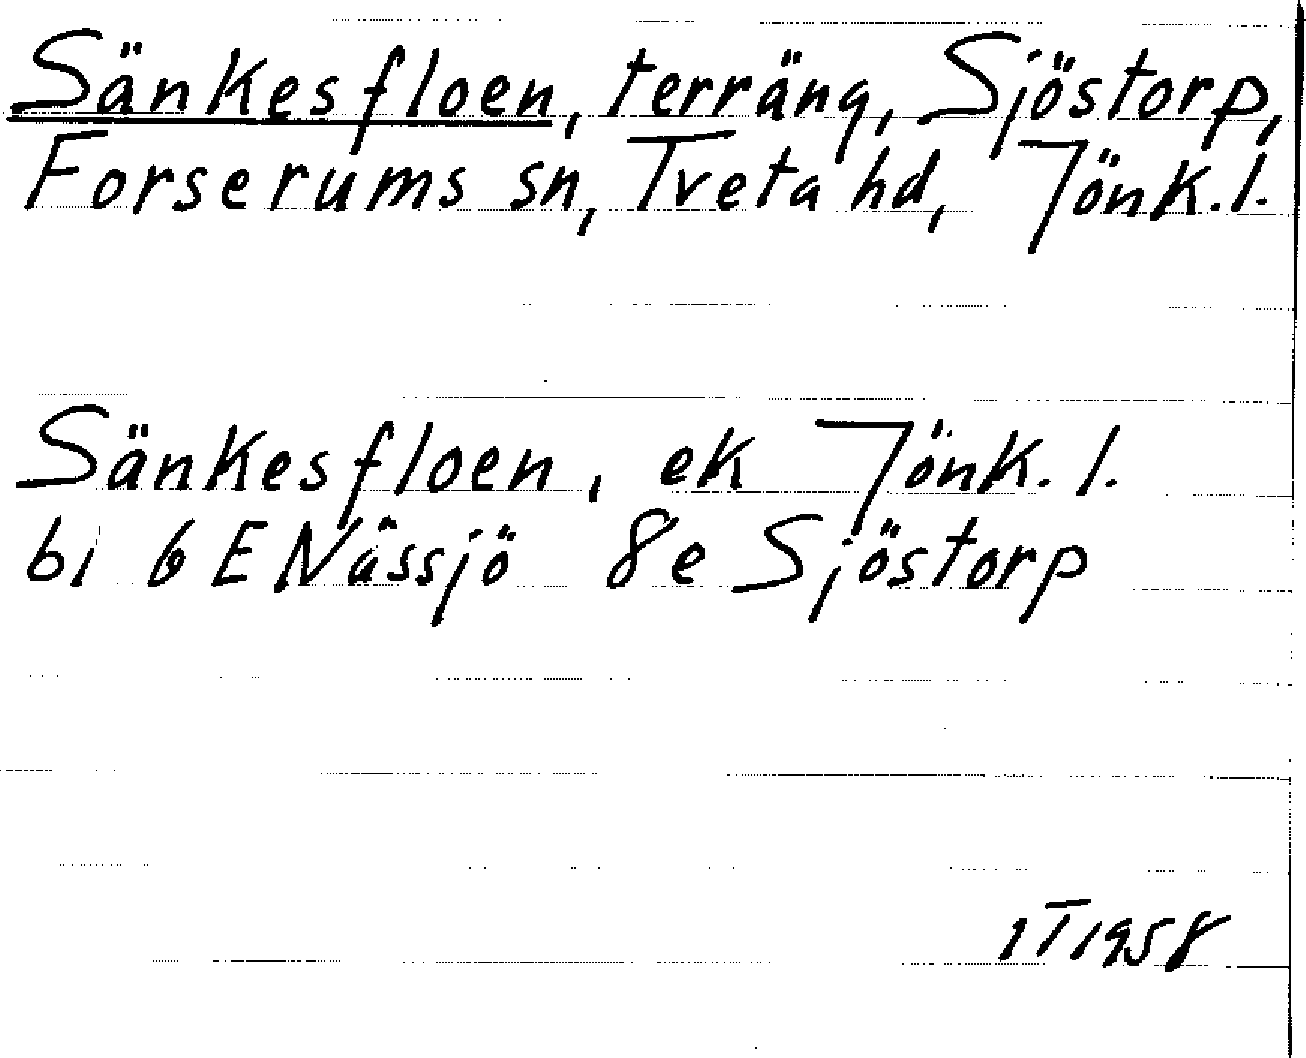 Sänkesfloen, terräng, Sjöstorp,
Forserums sn, Tveta hd, Jönk.l.
Sänkesfloen, ek Jönk.l.
bi 6 E Nässjö 8e Sjöstorp
1T1958